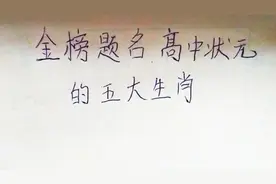 金榜题名 高中状元
的五大生肖